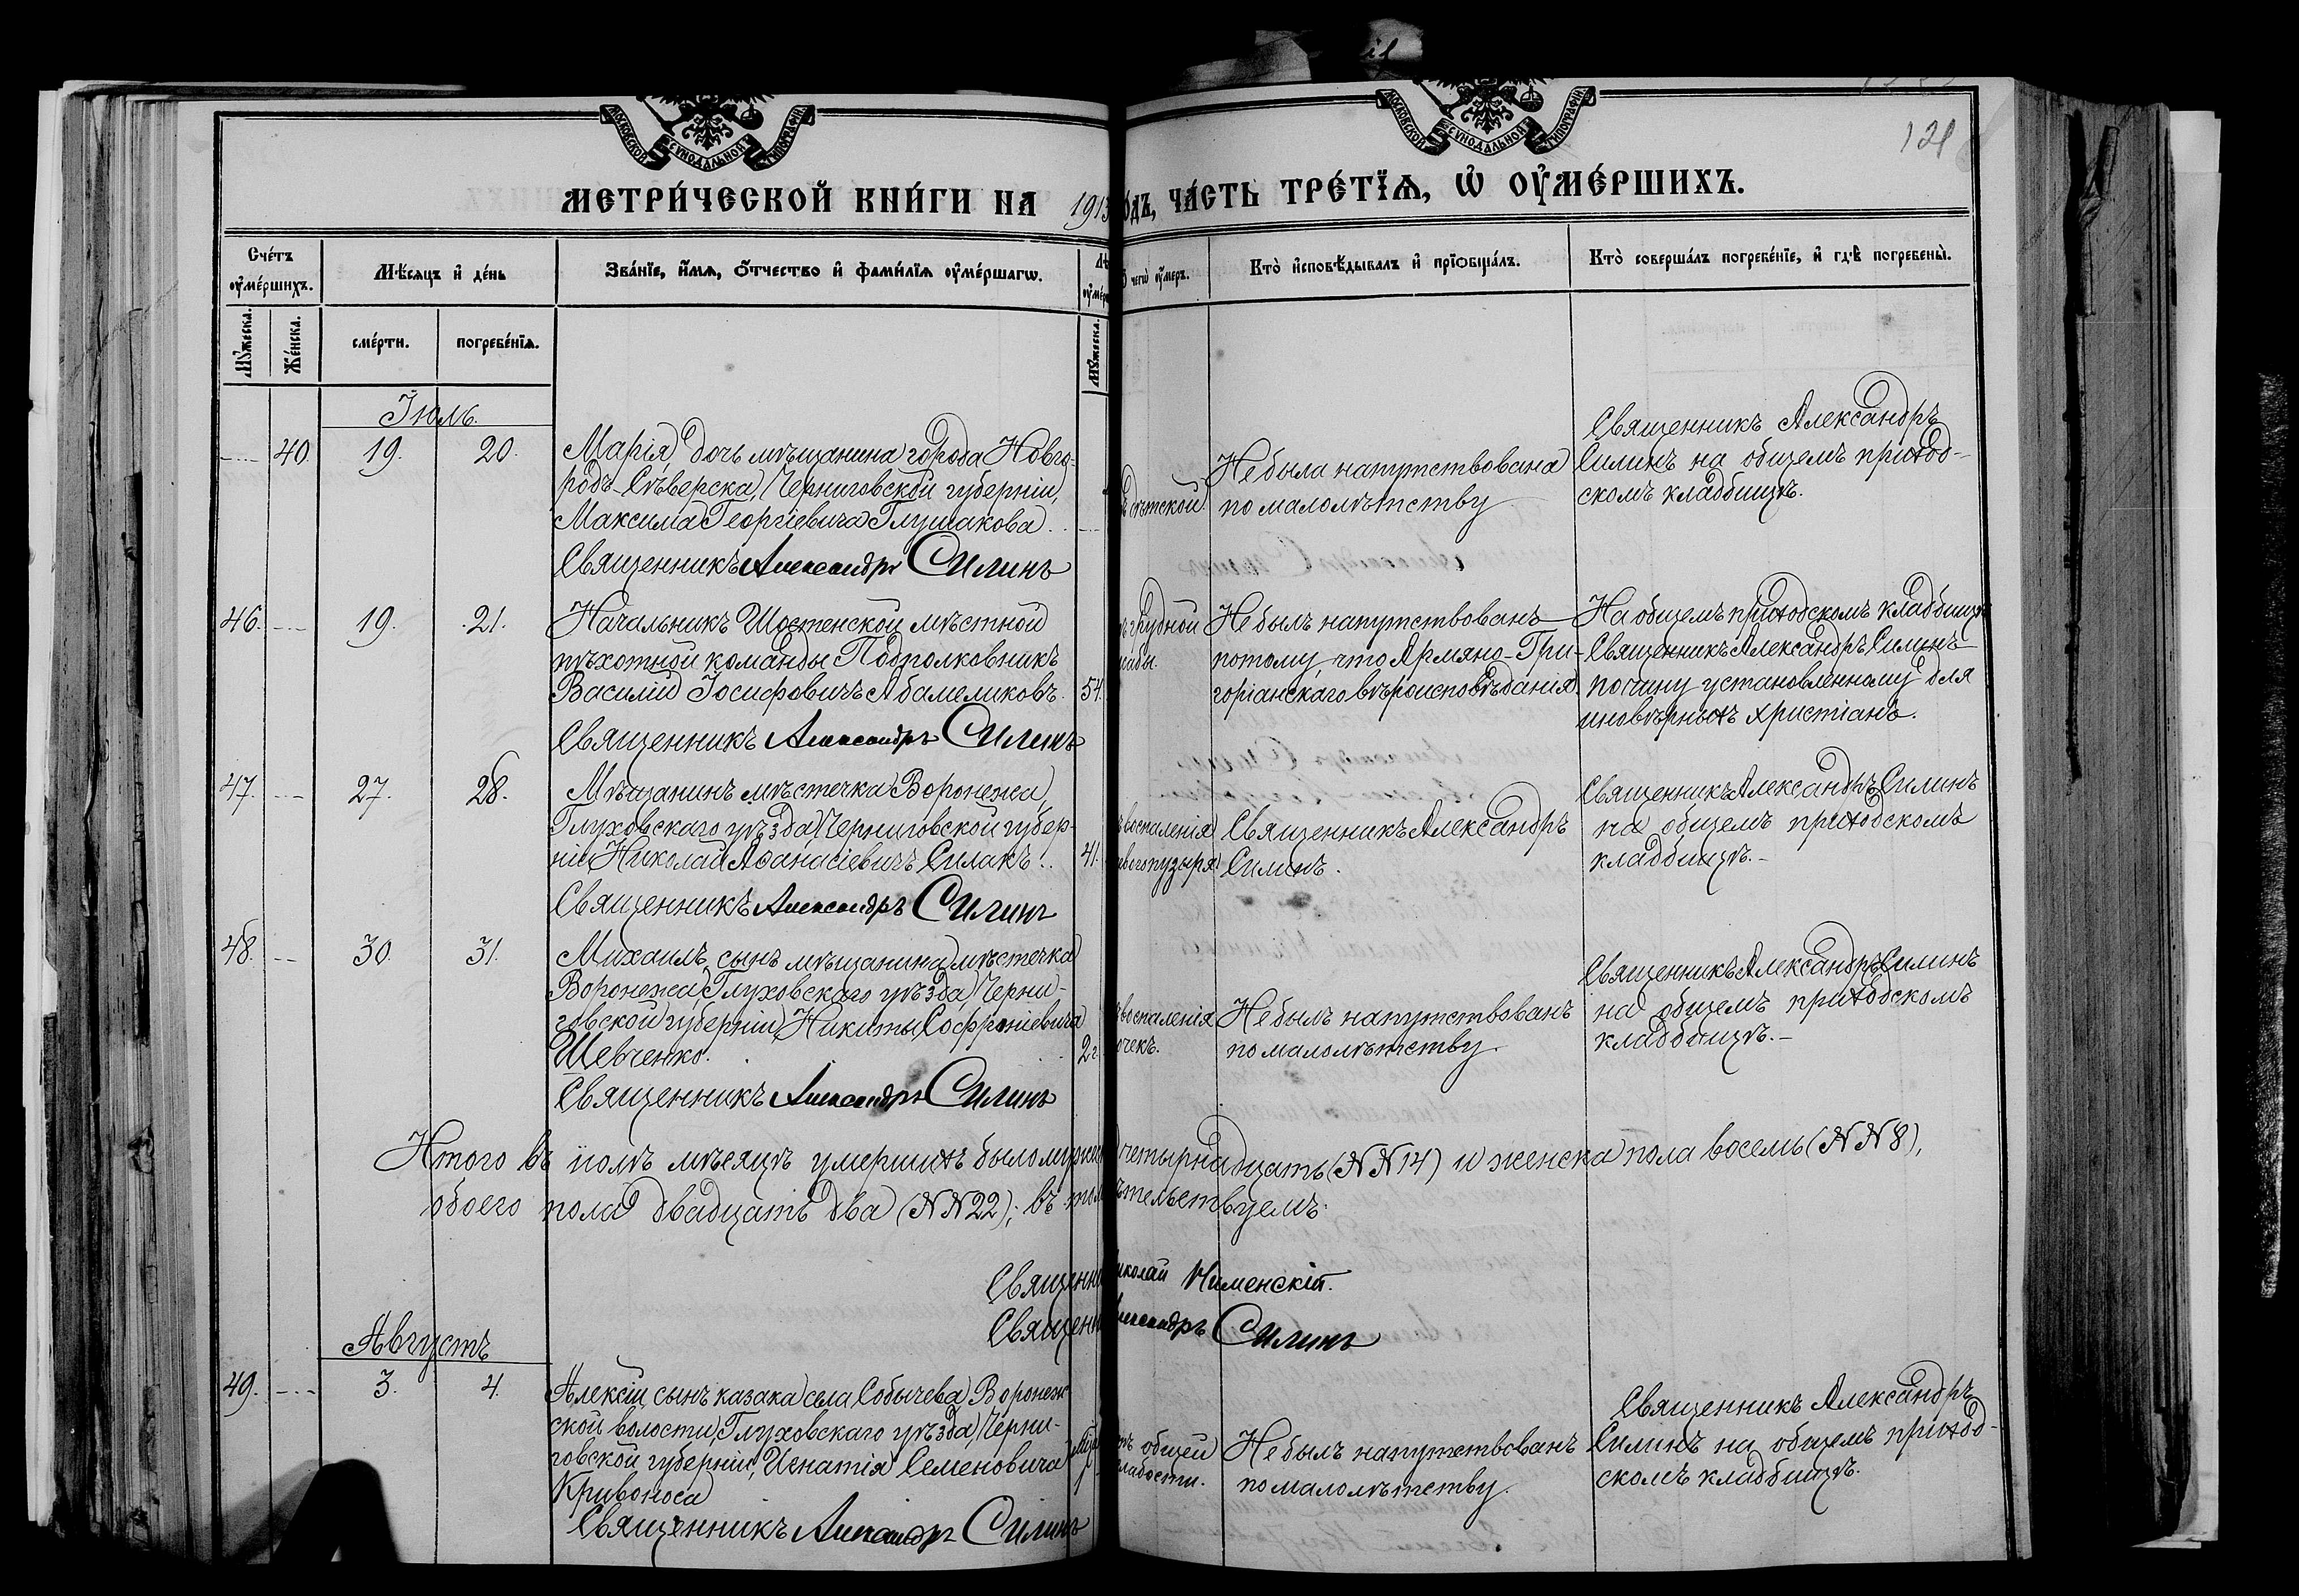 МОСКОВСКОЙ СѴНОДАЛЬНОЙ ТИПОГРАФІИ
МОСКОВСКОЙ СѴНОДАЛЬНОЙ ТИПОГРАФІИ
121
МЕТРИ́ЧЕСКОЙ КНИ́ГИ НА 1913
ОДЪ, ЧА́СТЬ ТРЕ́ТЇѦ, Ѡ҆ ОУ҆МЕ́РШИХЪ.
Сче́тъ оу҆ме́ршихъ.
Мѣ́сѧцъ и҆ де́нь
Зва́нїе, и҆́мѧ, ѻ҆́тчество и҆ фами́лїѧ оу҆ме́ршагѡ.
чегѡ̀ оу҆́меръ.
Кто̀ и҆сповѣ́дывалъ и҆ прїѡбща́лъ.
Кто̀ соверша́лъ погребе́нїе, и҆ гдѣ̀ погребены̀.
Мꙋ́жеска.
Же́нска.
сме́рти.
погребе́нїѧ.
Мꙋ́жеска.
Іюль.
40. 19. 20.
Марія, дочь мѣщанина города Новго-
родъ-Сѣверска, Черниговской губерніи,
Максима Георгіевича Глушакова.
Священникъ Александръ Силинъ
дѣтской
Не была напутствована
по малолѣтству
Священникъ Александръ
Силинъ на общемъ приход-
скомъ кладбищѣ.
46. 19. 21.
Начальникъ Шостенской мѣстной
пѣхотной команды Подполковникъ
Василій Іосифовичъ Абамеликовъ. 54.
Священникъ Александръ Силинъ
грудной
жабы.
Не былъ напутствованъ
потому, что Армяно-Гри-
горіанскаго вѣроисповѣданія.
На общемъ приходскомъ кладбищѣ
Священникъ Александръ Силинъ
по чину установленному для
иновѣрныхъ христіанъ.
47. 27. 28.
Мѣщанинъ мѣстечка Воронежа,
Глуховскаго уѣзда, Черниговской губер-
ніи Николай Аѳанасіевичъ Силакъ. 41.
Священникъ Александръ Силинъ
воспаленія
пузыря
Священникъ Александръ
Силинъ.
Священникъ Александръ Силинъ
на общемъ приходскомъ
кладбищѣ.-
48. 30. 31.
Михаилъ, сынъ мѣщанина мѣстечка
Воронежа, Глуховскаго уѣзда, Черни-
говской губерніи, Никиты Софроніевича
Шевченко. 2 г.
Священникъ Александръ Силинъ
воспаленія
очекъ.
Не былъ напутствованъ
по малолѣтству.
Священникъ Александръ Силинъ
на общемъ приходскомъ
кладбищѣ.-
Итого въ іюлѣ мѣсяцѣ умершихъ было мужеска четырнадцать (№№ 14) и женска пола восемь (№№ 8),
обоего пола двадцать два (№№ 22); въ томъ свидѣтельствуемъ:
Священникъ Николай Именскій.
Священникъ Александръ Силинъ
Августъ
49. 3. 4.
Алексій, сынъ казака села Собычева, Воронеж-
ской волости, Глуховскаго уѣзда, Черни-
говской губерніи, Игнатія Семеновича
Кривоноса
Священникъ Александръ Силинъ
общей
слабости.
Не былъ напутствованъ
по малолѣтству.
Священникъ Александръ
Силинъ на общемъ приход-
скомъ кладбищѣ.